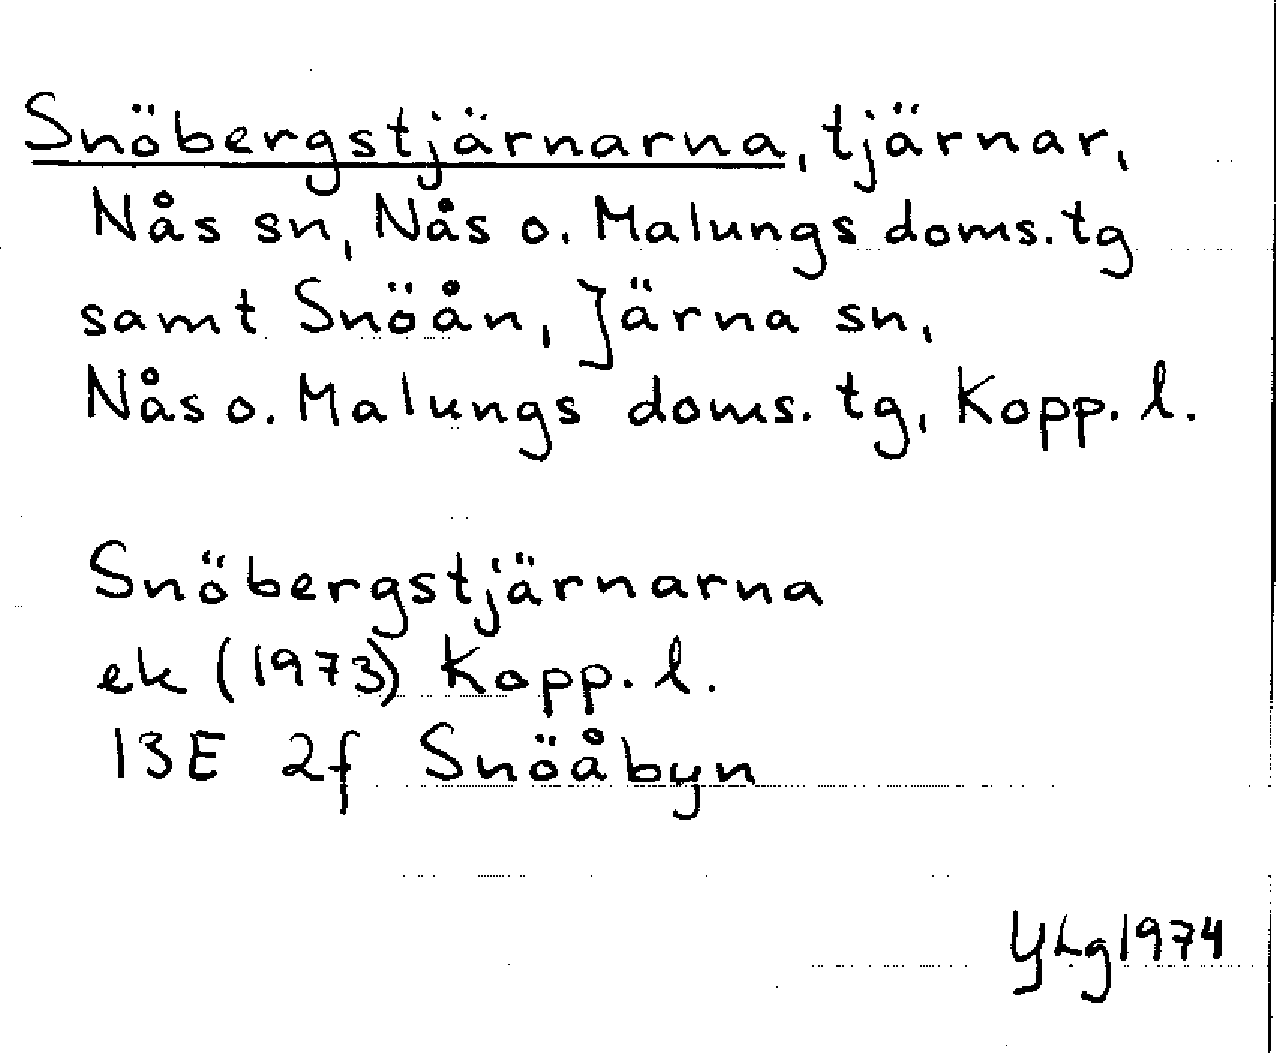 Snöbergstjärnarna, tjärnar,
Nås sn, Nås o. Malungs doms. tg
samt Snöån, Järna sn,
Nås o. Malungs doms. tg, Kopp. l.
Snöbergstjärnarna
ek (1973) Kopp. l.
13E 2f Snöåbyn
YLg 1974